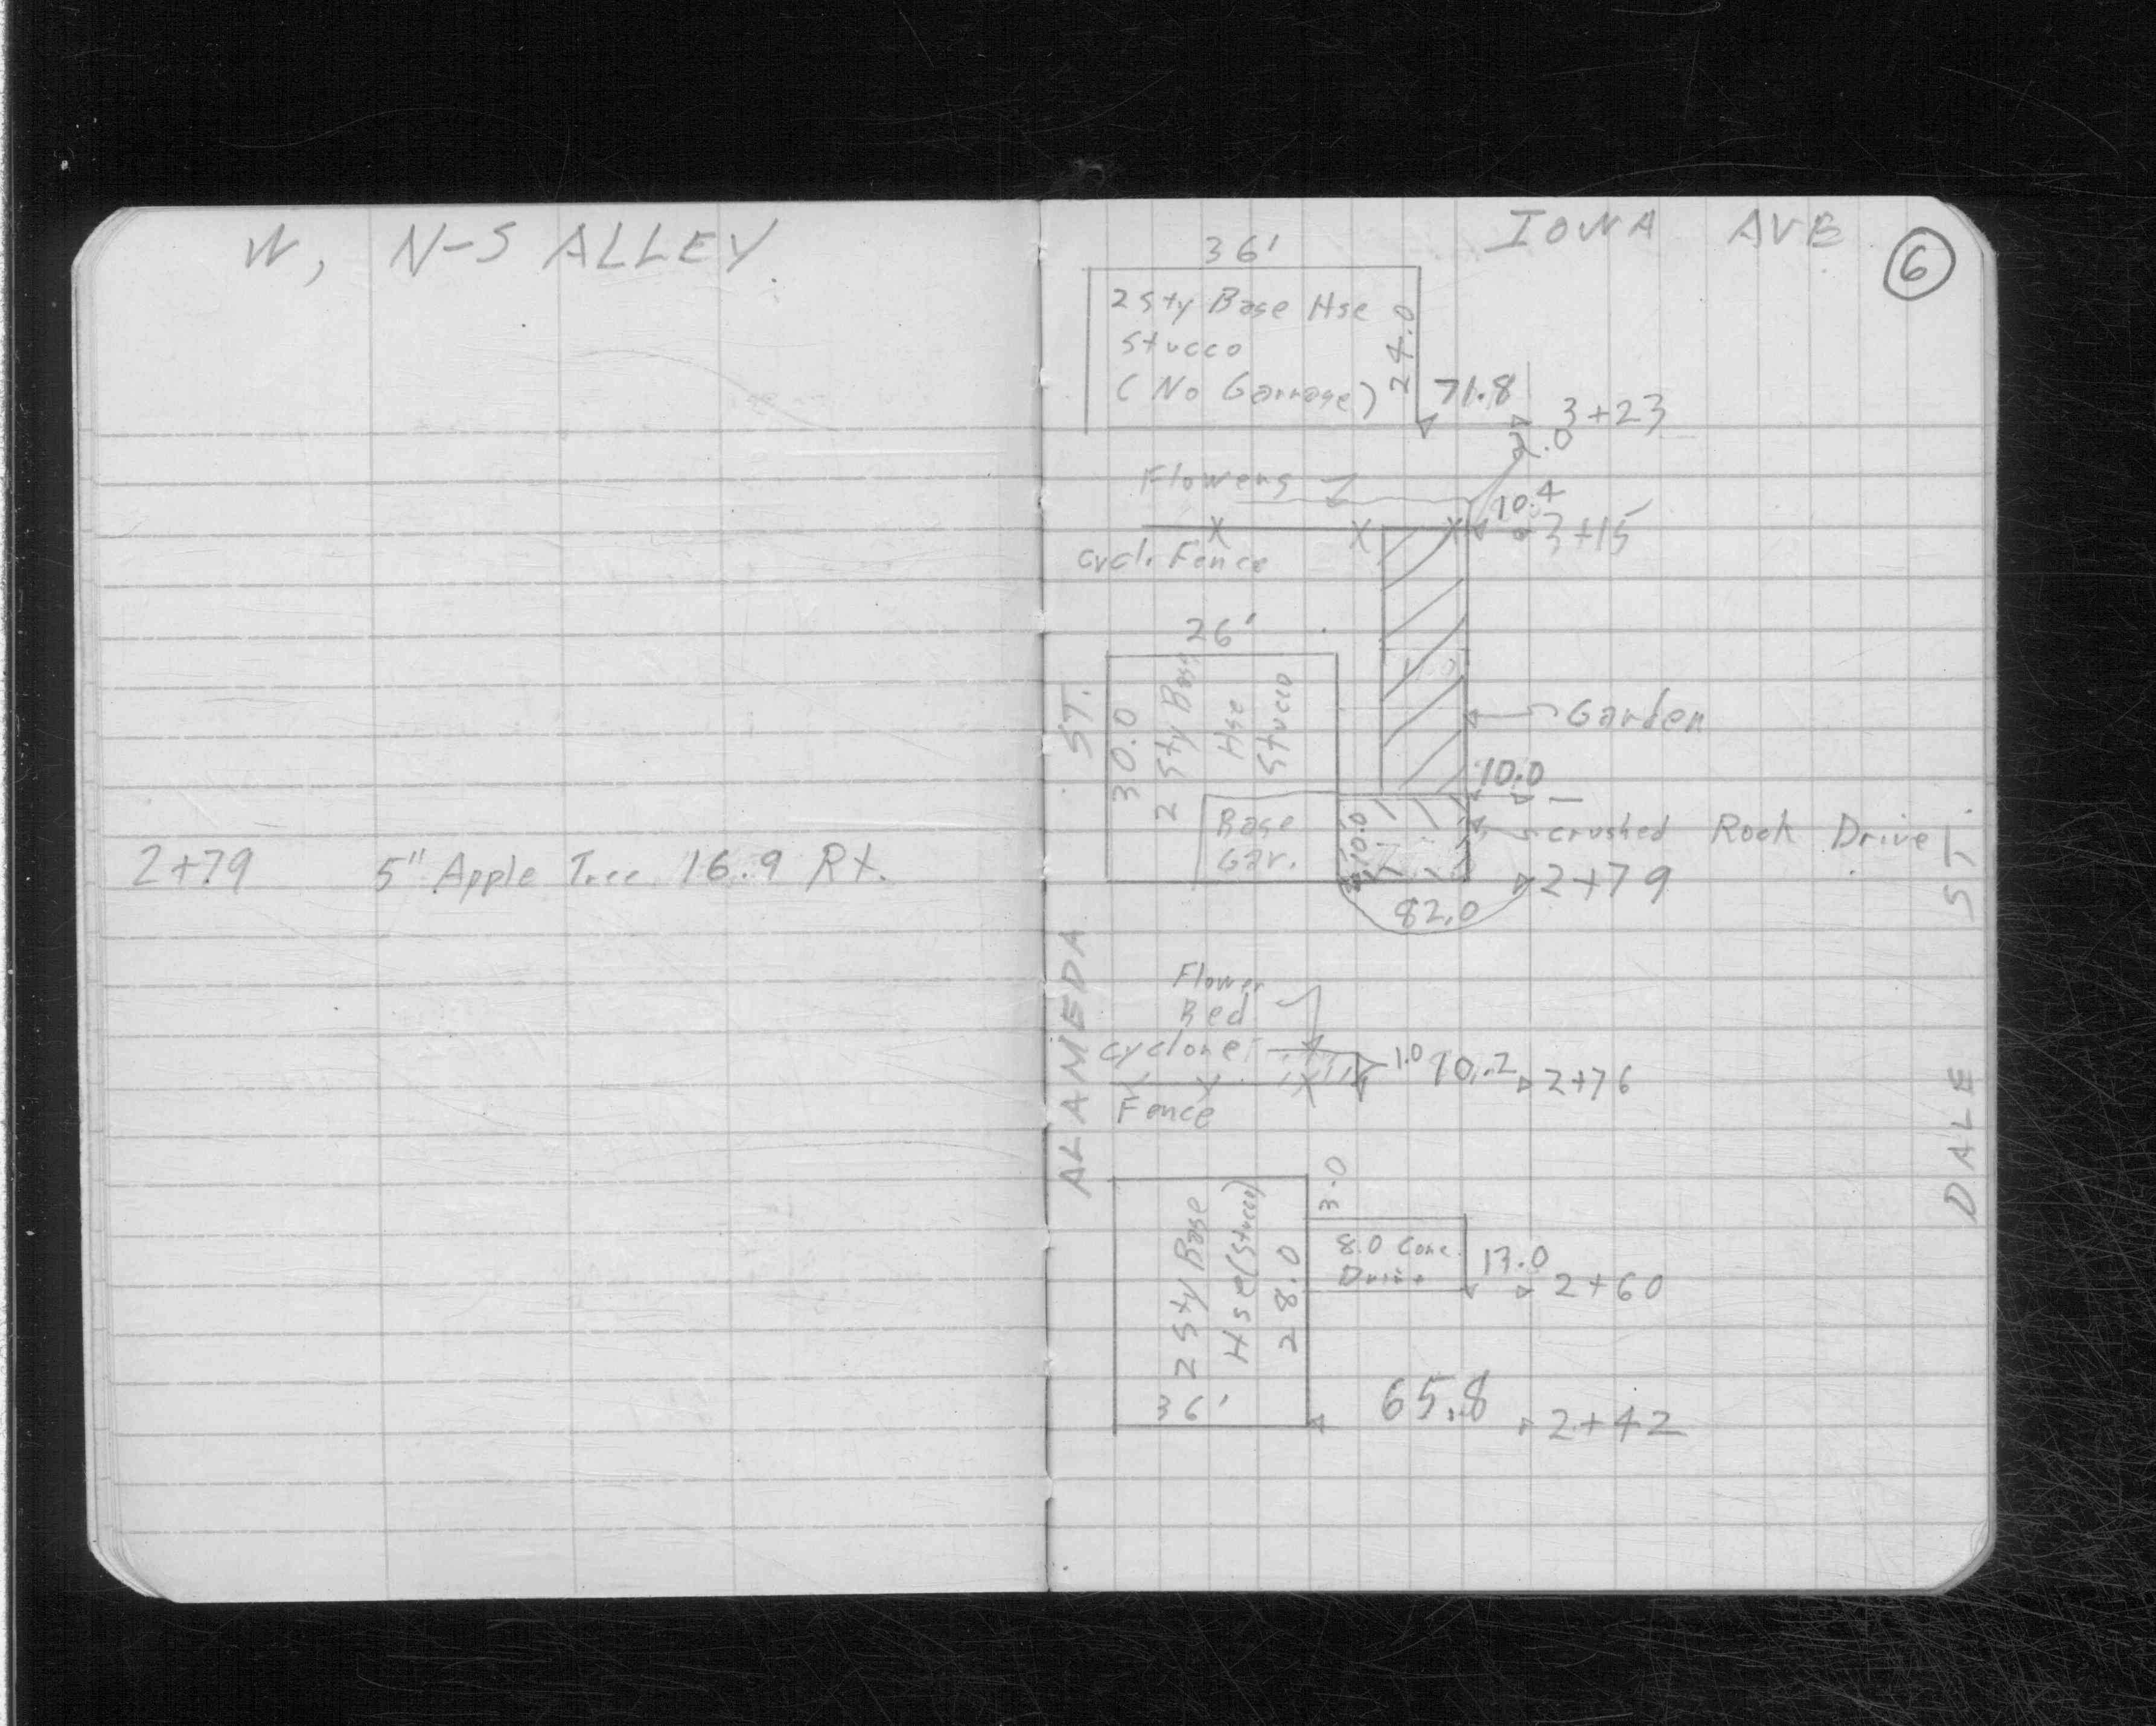 W, N-S ALLEY
2+79 5" Apple Tree 16.9 Rt.
IOWA AVE
6
36'
2 Sty Base Hse
Stucco
(No Garrage)
24.0
71.8
3+23
2.0
Flowers
10.4
3+15
cycl. Fence
26'
30.0
2 Sty Base
Hse
Stucco
Garden
10.0
Base
Gar.
10.0
crushed Rock Drive
2+79
82.0
ALAMEDA ST.
DALE ST.
Flower
Bed
cyclone
Fence
1.0
10.2
2+76
3.0
2 Sty Base
Hse (Stucco)
28.0
36'
8.0 Conc.
Drive
17.0
2+60
65.8
2+42